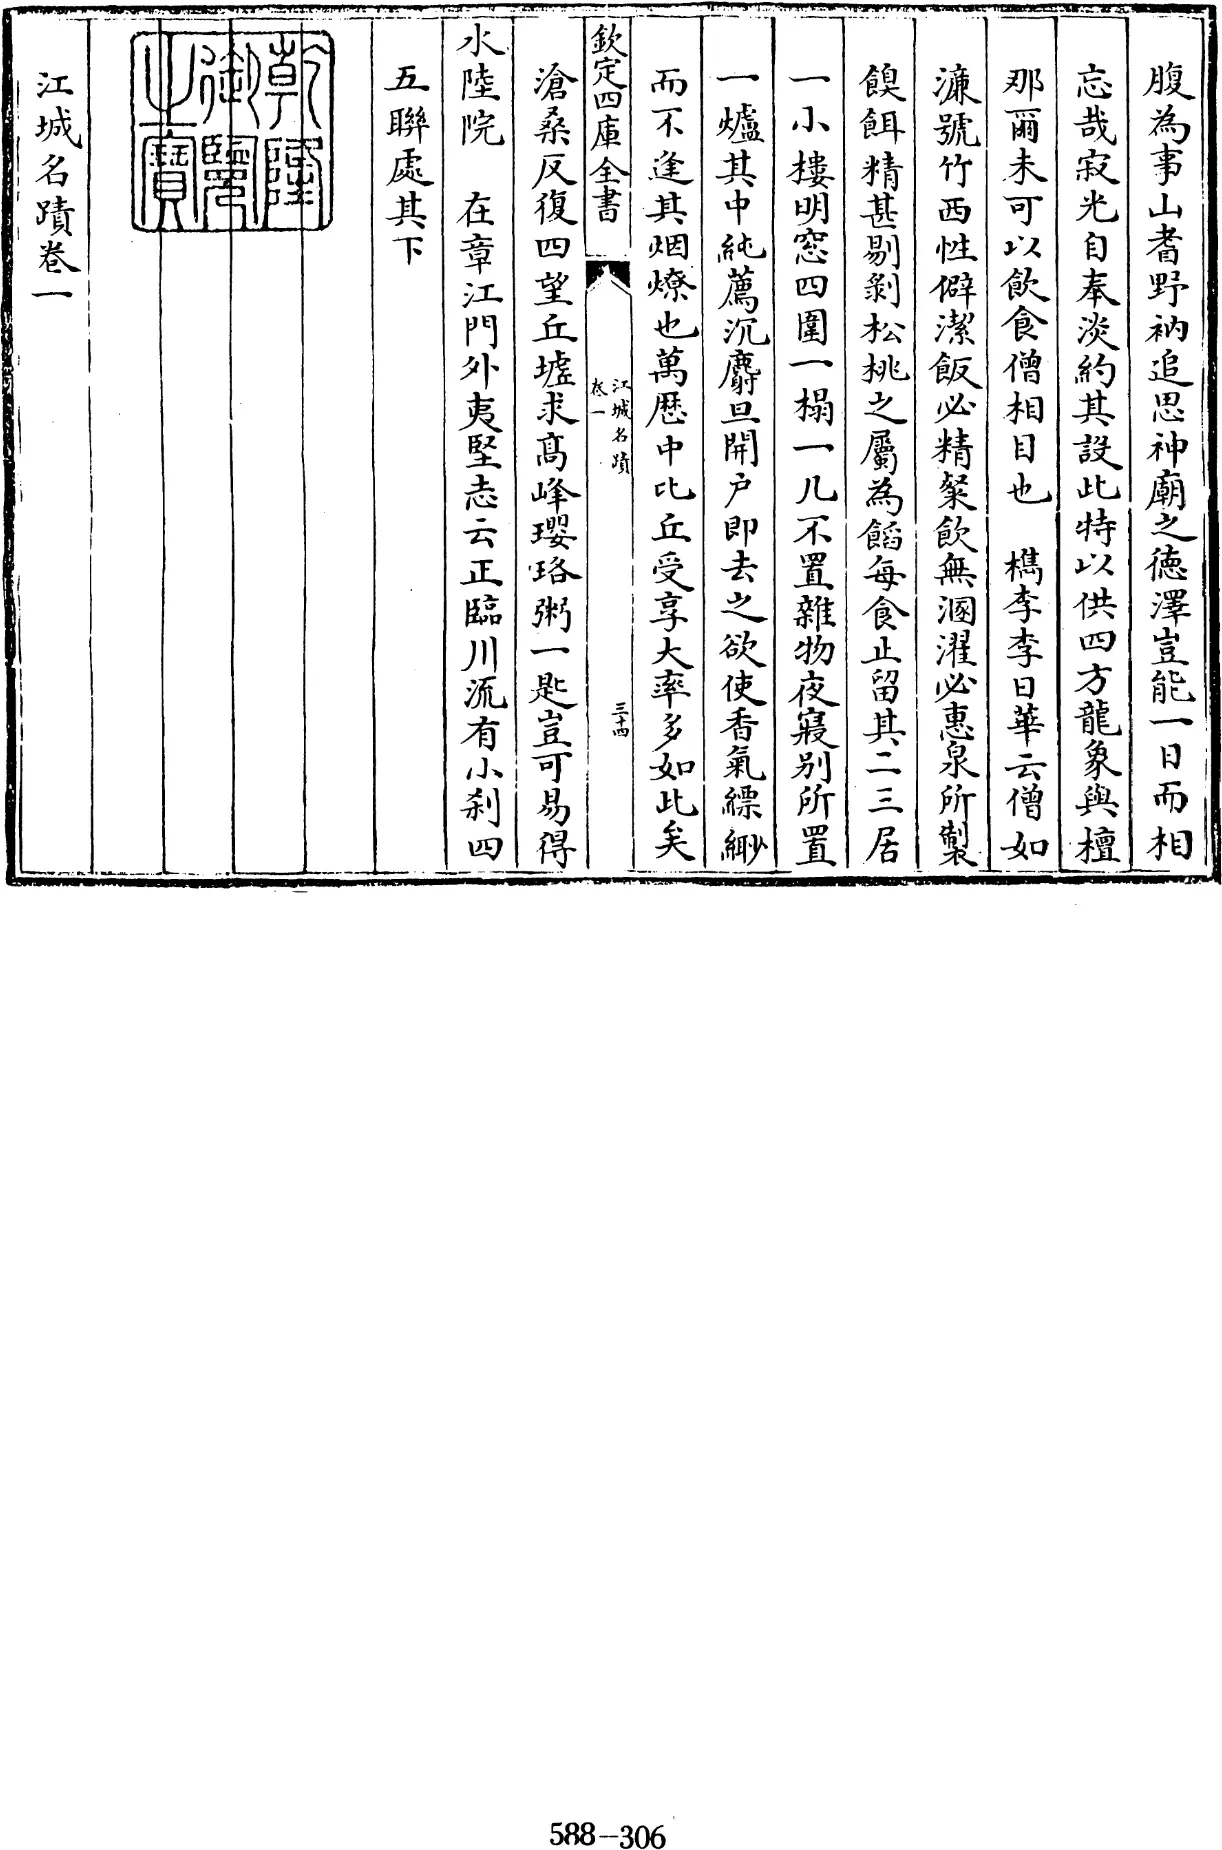 腹為事山耆野衲追思神廟之德澤豈能一日而相
忘哉寂光自奉淡約其設此特以供四方龍象與檀
那爾未可以飲食僧相目也　檇李李日華云僧如
濂號竹西性僻潔飯必精粲飲無溷濯必惠泉所製
餽餌精甚剔剝松桃之屬為餡每食止留其二三居
一小樓明窓四圍一榻一几不置雜物夜寢别所置
一爐其中純薦沉麝旦開户即去之欲使香氣縹緲
而不逢其烟燎也萬歴中比丘受享大率多如此矣
欽定四庫全書
江城名蹟
卷一
三十四
滄桑反復四望丘墟求髙峰瓔珞粥一匙豈可易得
水陸院　在章江門外夷堅志云正臨川流有小刹四
五聯處其下
乾隆御覽之寶
江城名蹟卷一
588-306